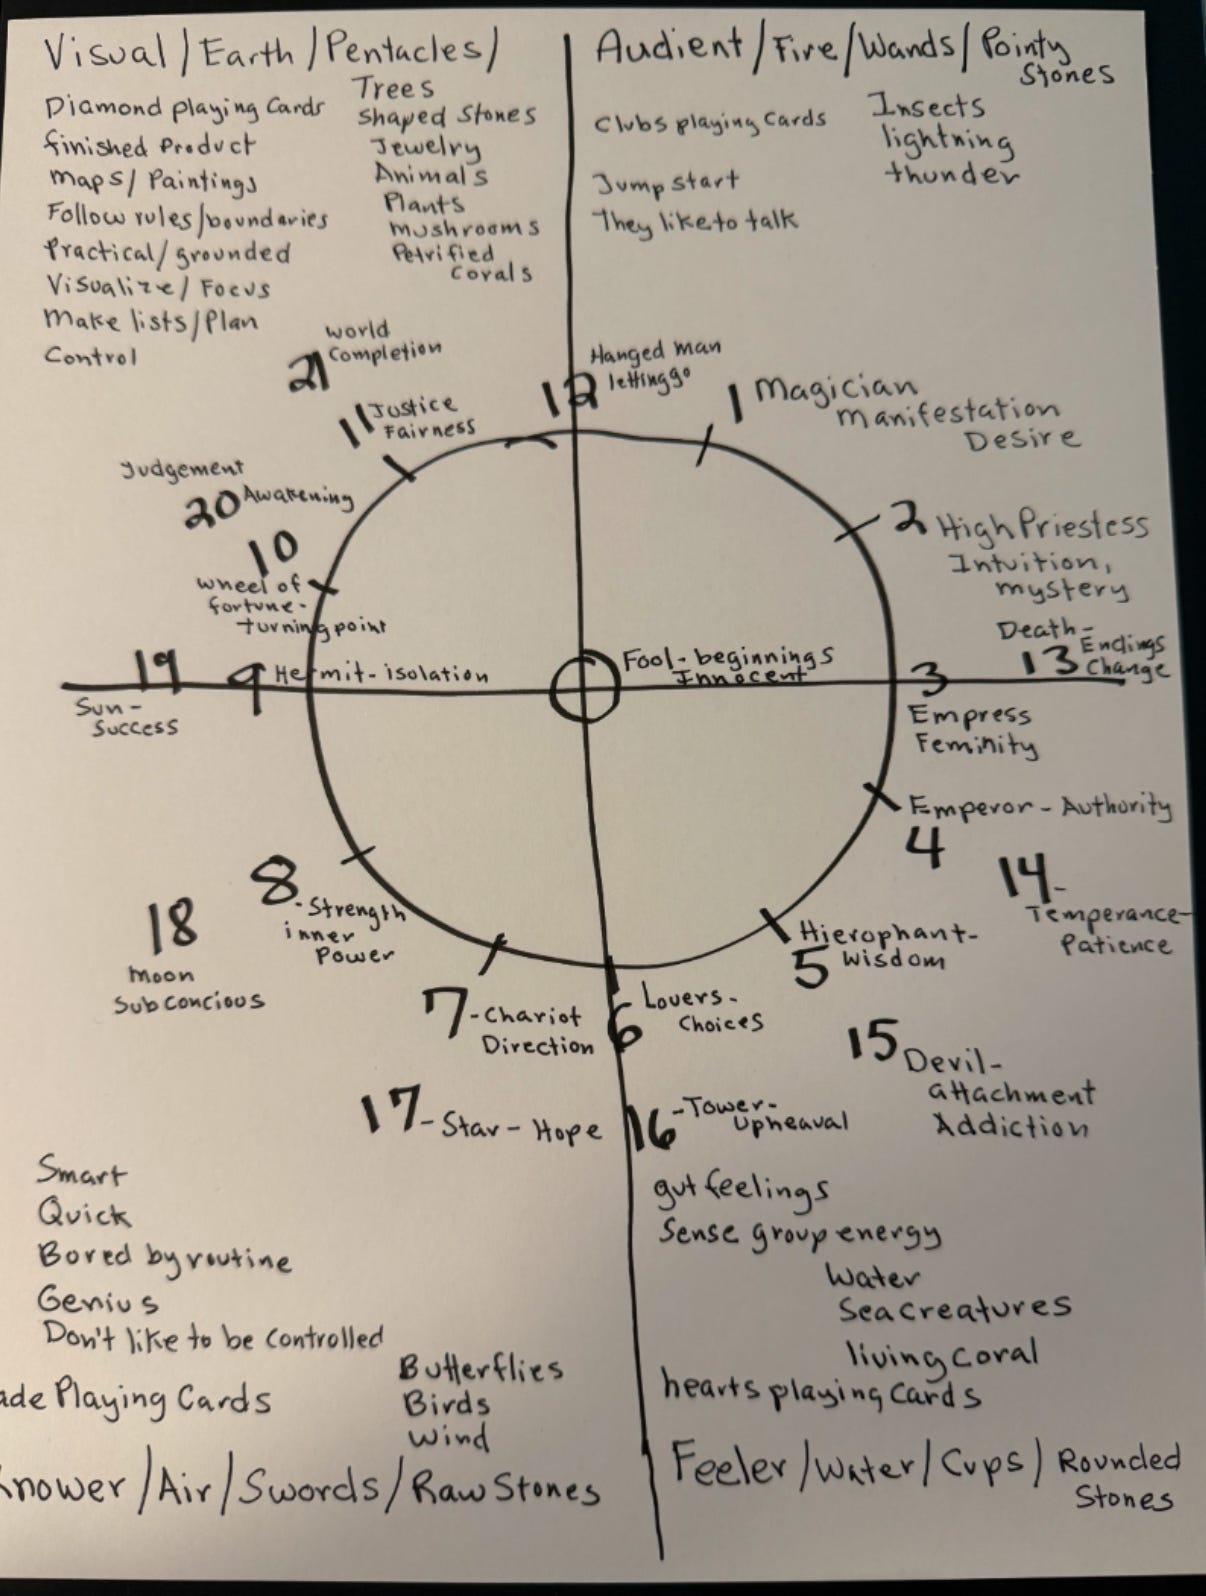 Visual/Earth/Pentacles/
Diamond playing Cards
finished Product
maps/Paintings
Follow rules/boundaries
Practical/grounded
Visualize/Focus
Make lists/Plan
Control
Trees
Shaped Stones
Jewelry
Animals
Plants
mushrooms
Petrified
Corals
Audient/Fire/Wands/Pointy
Stones
Clubs playing Cards
Jump start
They like to talk
Insects
lightning
thunder
world
21 Completion
11 Justice
Fairness
Judgement
20 Awakening
10
wheel of
fortune-
turning point
19
Sun-
Success
9 Hermit-isolation
12 Hanged man
letting go
1 Magician
Manifestation
Desire
2 High Priestess
Intuition,
mystery
Death-
13 Endings
Change
Fool-beginnings
Innocent
3
Empress
Feminity
Emperor-Authority
4
14-
Temperance-
Patience
Hierophant-
5 Wisdom
6 Lovers-
Choices
15 Devil-
attachment
Addiction
16-Tower-
Upheaval
8-Strength
inner
Power
18
Moon
Subconcious
7-Chariot
Direction
17-Star-Hope
Smart
Quick
Bored by routine
Genius
Don't like to be controlled
ade Playing Cards
Butterflies
Birds
Wind
nower/Air/Swords/Raw Stones
gut feelings
Sense group energy
Water
Sea creatures
living coral
hearts playing Cards
Feeler/Water/Cups/Rounded
Stones